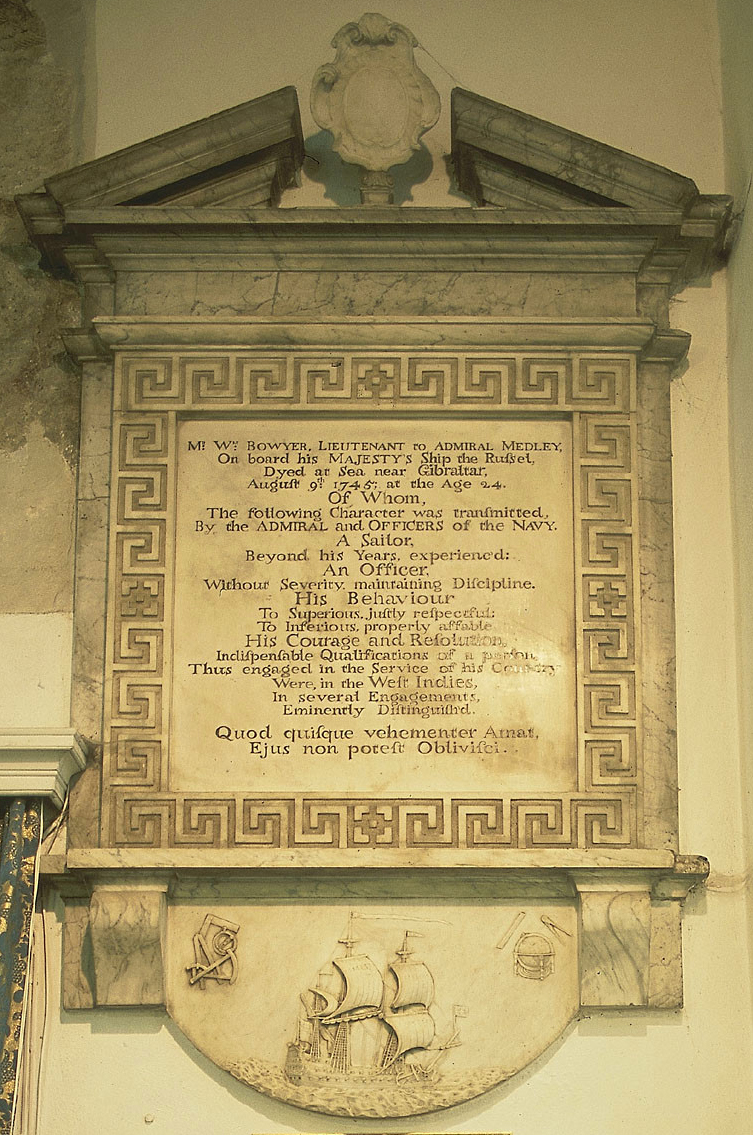 Mr. Wm. BOWYER, LIEUTENANT to ADMIRAL MEDLEY,
On board his MAJESTY'S Ship the Ruſſel,
Dyed at Sea near Gibraltar,
Auguſt 9th. 1745; at the Age 24.
Of Whom,
The following Character was tranſmitted,
By the ADMIRAL and OFFICERS of the NAVY.
A Sailor,
Beyond his Years, experienc'd:
An Officer,
Without Severity, maintaining Diſcipline.
His Behaviour
To Superious, juſtly reſpectful:
To Inferious, properly affable
His Courage and Reſolution,
Indiſpenſable Qualifications of a perſon,
Thus engaged in the Service of his Country
Were, in the Weſt Indies,
In several Engagements,
Eminently Diſtinguiſh'd.
Quod quiſque vehementer Amat,
Ejus non poteſt Obliviſci.